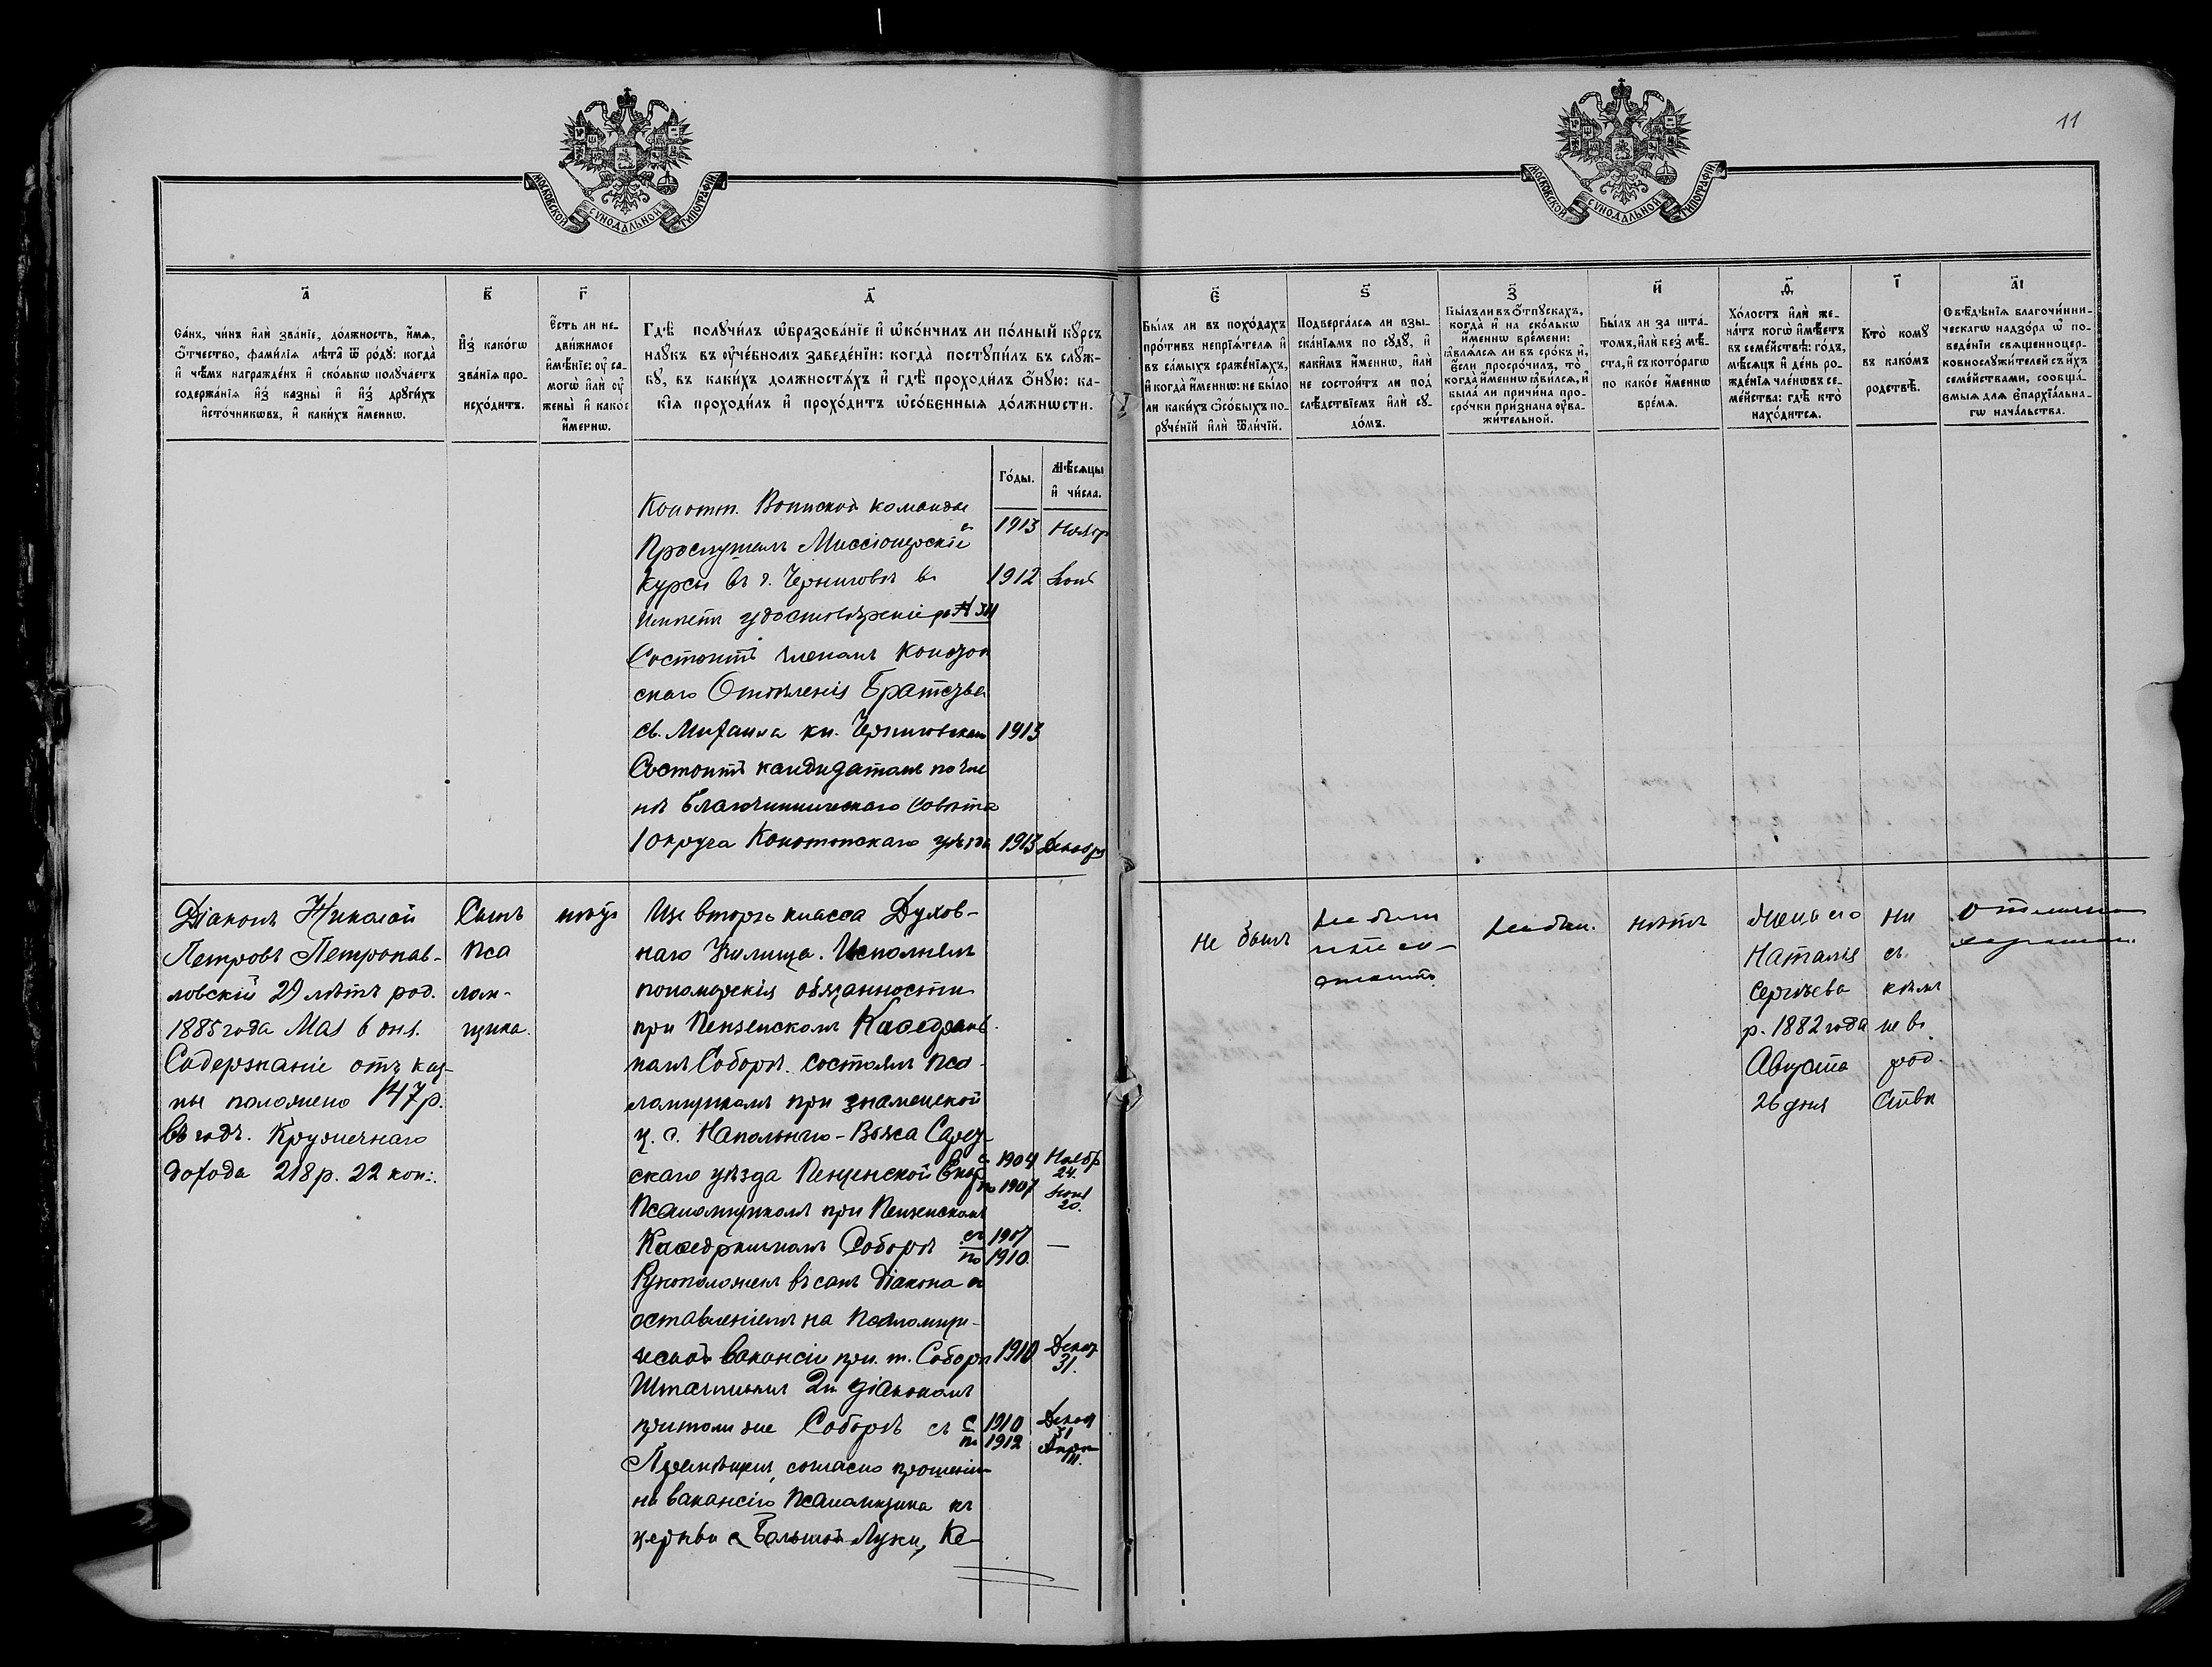 11
МОСКОВСКОЙ СѴНОДАЛЬНОЙ ТИПОГРАФІИ
МОСКОВСКОЙ СѴНОДАЛЬНОЙ ТИПОГРАФІИ
а҃
Са́нъ, чи́нъ и҆лѝ зва́нїе, до́лжность, и҆́мѧ,
ѻ҆́тчество, фами́лїѧ лѣ́та ѿ ро́дꙋ: когда̀
и҆ чѣ́мъ награжде́нъ и҆ ско́лькѡ полꙋча́етъ
содержа́нїѧ и҆з̾ казны̀ и҆ и҆з̾ дрꙋги́хъ
и҆сто́чникѡвъ, и҆ каки́хъ и҆́меннѡ.
в҃
И҆з̾ како́гѡ
зва́нїѧ про-
исхо́дитъ.
г҃
Е҆́сть ли не-
дви́жимое
и҆мѣ́нїе: ᲂу҆ са-
могѡ̀ и҆лѝ ᲂу҆
жены̀ и҆ како́е
и҆́меннѡ.
д҃
Гдѣ̀ полꙋчи́лъ ѡ҆бразова́нїе и҆ ѡ҆ко́нчилъ ли по́лный кꙋ́рсъ
наꙋ́къ въ ᲂу҆че́бномъ заведе́нїи: когда̀ постꙋпи́лъ въ слꙋ́ж-
бꙋ, въ каки́хъ должностѧ́хъ и҆ гдѣ̀ проходи́лъ ѻ҆́нꙋю: ка-
кі́ѧ проходи́лъ и҆ прохо́дитъ ѡ҆со́бенныѧ до́лжнѡсти.
Го́ды.
Мѣ́сѧцы
и҆ чи́сла.
є҃
Бы́лъ ли въ похо́дахъ
про́тивъ непрїѧ́телѧ и҆
въ са́мыхъ сраже́нїѧхъ,
и҆ когда̀ и҆́меннѡ: не бы́ло
ли каки́хъ ѻ҆со́быхъ по-
рꙋче́нїй и҆лѝ ѿли́чїй.
ѕ҃
Подверга́лсѧ ли взы-
ска́нїѧмъ по сꙋдꙋ̀, и҆
каки́мъ и҆́меннѡ, и҆лѝ
не состои́тъ ли под̾
слѣ́дствїемъ и҆лѝ сꙋ-
до́мъ.
з҃
Бы́лъ ли въ ѻ҆́тпꙋскахъ,
когда̀ и҆ на ско́лькѡ
и҆́меннѡ вре́мени:
ꙗ҆влѧ́лсѧ ли въ сро́къ и҆,
е҆́сли просро́чилъ, то̀
когда̀ и҆́меннѡ ꙗ҆ви́лсѧ, и҆
была̀ ли причи́на про-
сро́чки при́знана ᲂу҆ва-
жи́тельной.
и҃
Бы́лъ ли за шта́-
томъ, и҆лѝ без̾ мѣ́-
ста, и҆ съ кото́рагѡ
по како́е и҆́меннѡ
вре́мѧ.
ѳ҃
Хо́лостъ и҆лѝ же-
на́тъ когѡ̀ и҆мѣ́етъ
въ семе́йствѣ: го́дъ,
мѣ́сѧцъ и҆ де́нь ро-
жде́нїѧ чле́нѡвъ се-
ме́йства: гдѣ̀ кто̀
нахо́дитсѧ.
і҃
Кто̀ комꙋ̀
въ како́мъ
родствѣ̀.
а҃і
Свѣ́дѣнїѧ благочи́нни-
ческагѡ надзо́ра ѡ҆ по-
веде́нїи свѧщенноцер-
ковнослꙋжи́телей съ и҆́хъ
семе́йствами, сообща́-
емыѧ длѧ є҆парХїа́льна-
гѡ нача́льства.
Конотп. Воинской команды
1913 Ноябр
Прослушалъ Миссіонерскіе
курсы въ г. Черниговѣ въ 1912 Іюнѣ
Имѣетъ удостовѣреніе
Состоитъ членомъ Коното
скаго Отдѣленія Братства
св. Михаила кн. Черниговскаго 1913
Состоитъ кандидатомъ по чле
нѣ Благочинническаго Совѣта
1 округа Конотопскаго уѣзда 1913 Декабрь
Діаконъ Николай
Петровъ Петропав-
ловскій 29 лѣтъ род.
1885 года Мая 6 дня.
Содержаніе отъ каз-
ны положено 147 р.
въ годъ. Кружечнаго
дохода 218 р. 22 коп.
Сынъ
Пса
лом-
щика.
нѣту
Изъ второго класса Духов-
наго Училища. Исполнялъ
пономарскія обязанности
при Пензенскомъ Каѳедраль-
номъ Соборѣ. Состоялъ Пса-
ломщикомъ при Знаменской
ц. с. Напольнаго-Вьяса Саран-
скаго уѣзда Пензенской Епар с 1904 Ноябр 24.
по 1907 Іюня 20.
Псаломщикомъ при Пензенскомъ
Каѳедральномъ Соборѣ съ 1907
по 1910. —
Рукоположенъ въ санъ діакона съ
оставленіемъ на псаломщи-
ческой вакансіи при т. Соборѣ 1910 Декабр 31.
Штатнымъ 2м діакономъ
при томъ же Соборѣ съ с 1910 Декаб 31
по 1912 Апрѣл 11.
Перемѣщенъ, согласно прошенію
на вакансію Псаломщика къ
церкви с Большой-Луки, Ке-
Не былъ
Не былъ
и не со-
стоитъ
Не был.
нѣтъ
Жена его
Наталія
Сергѣева
р. 1882 года
Августа
26 дня
Ни
съ
кѣмъ
не въ
род
ствѣ
Отлично
хорошаго.